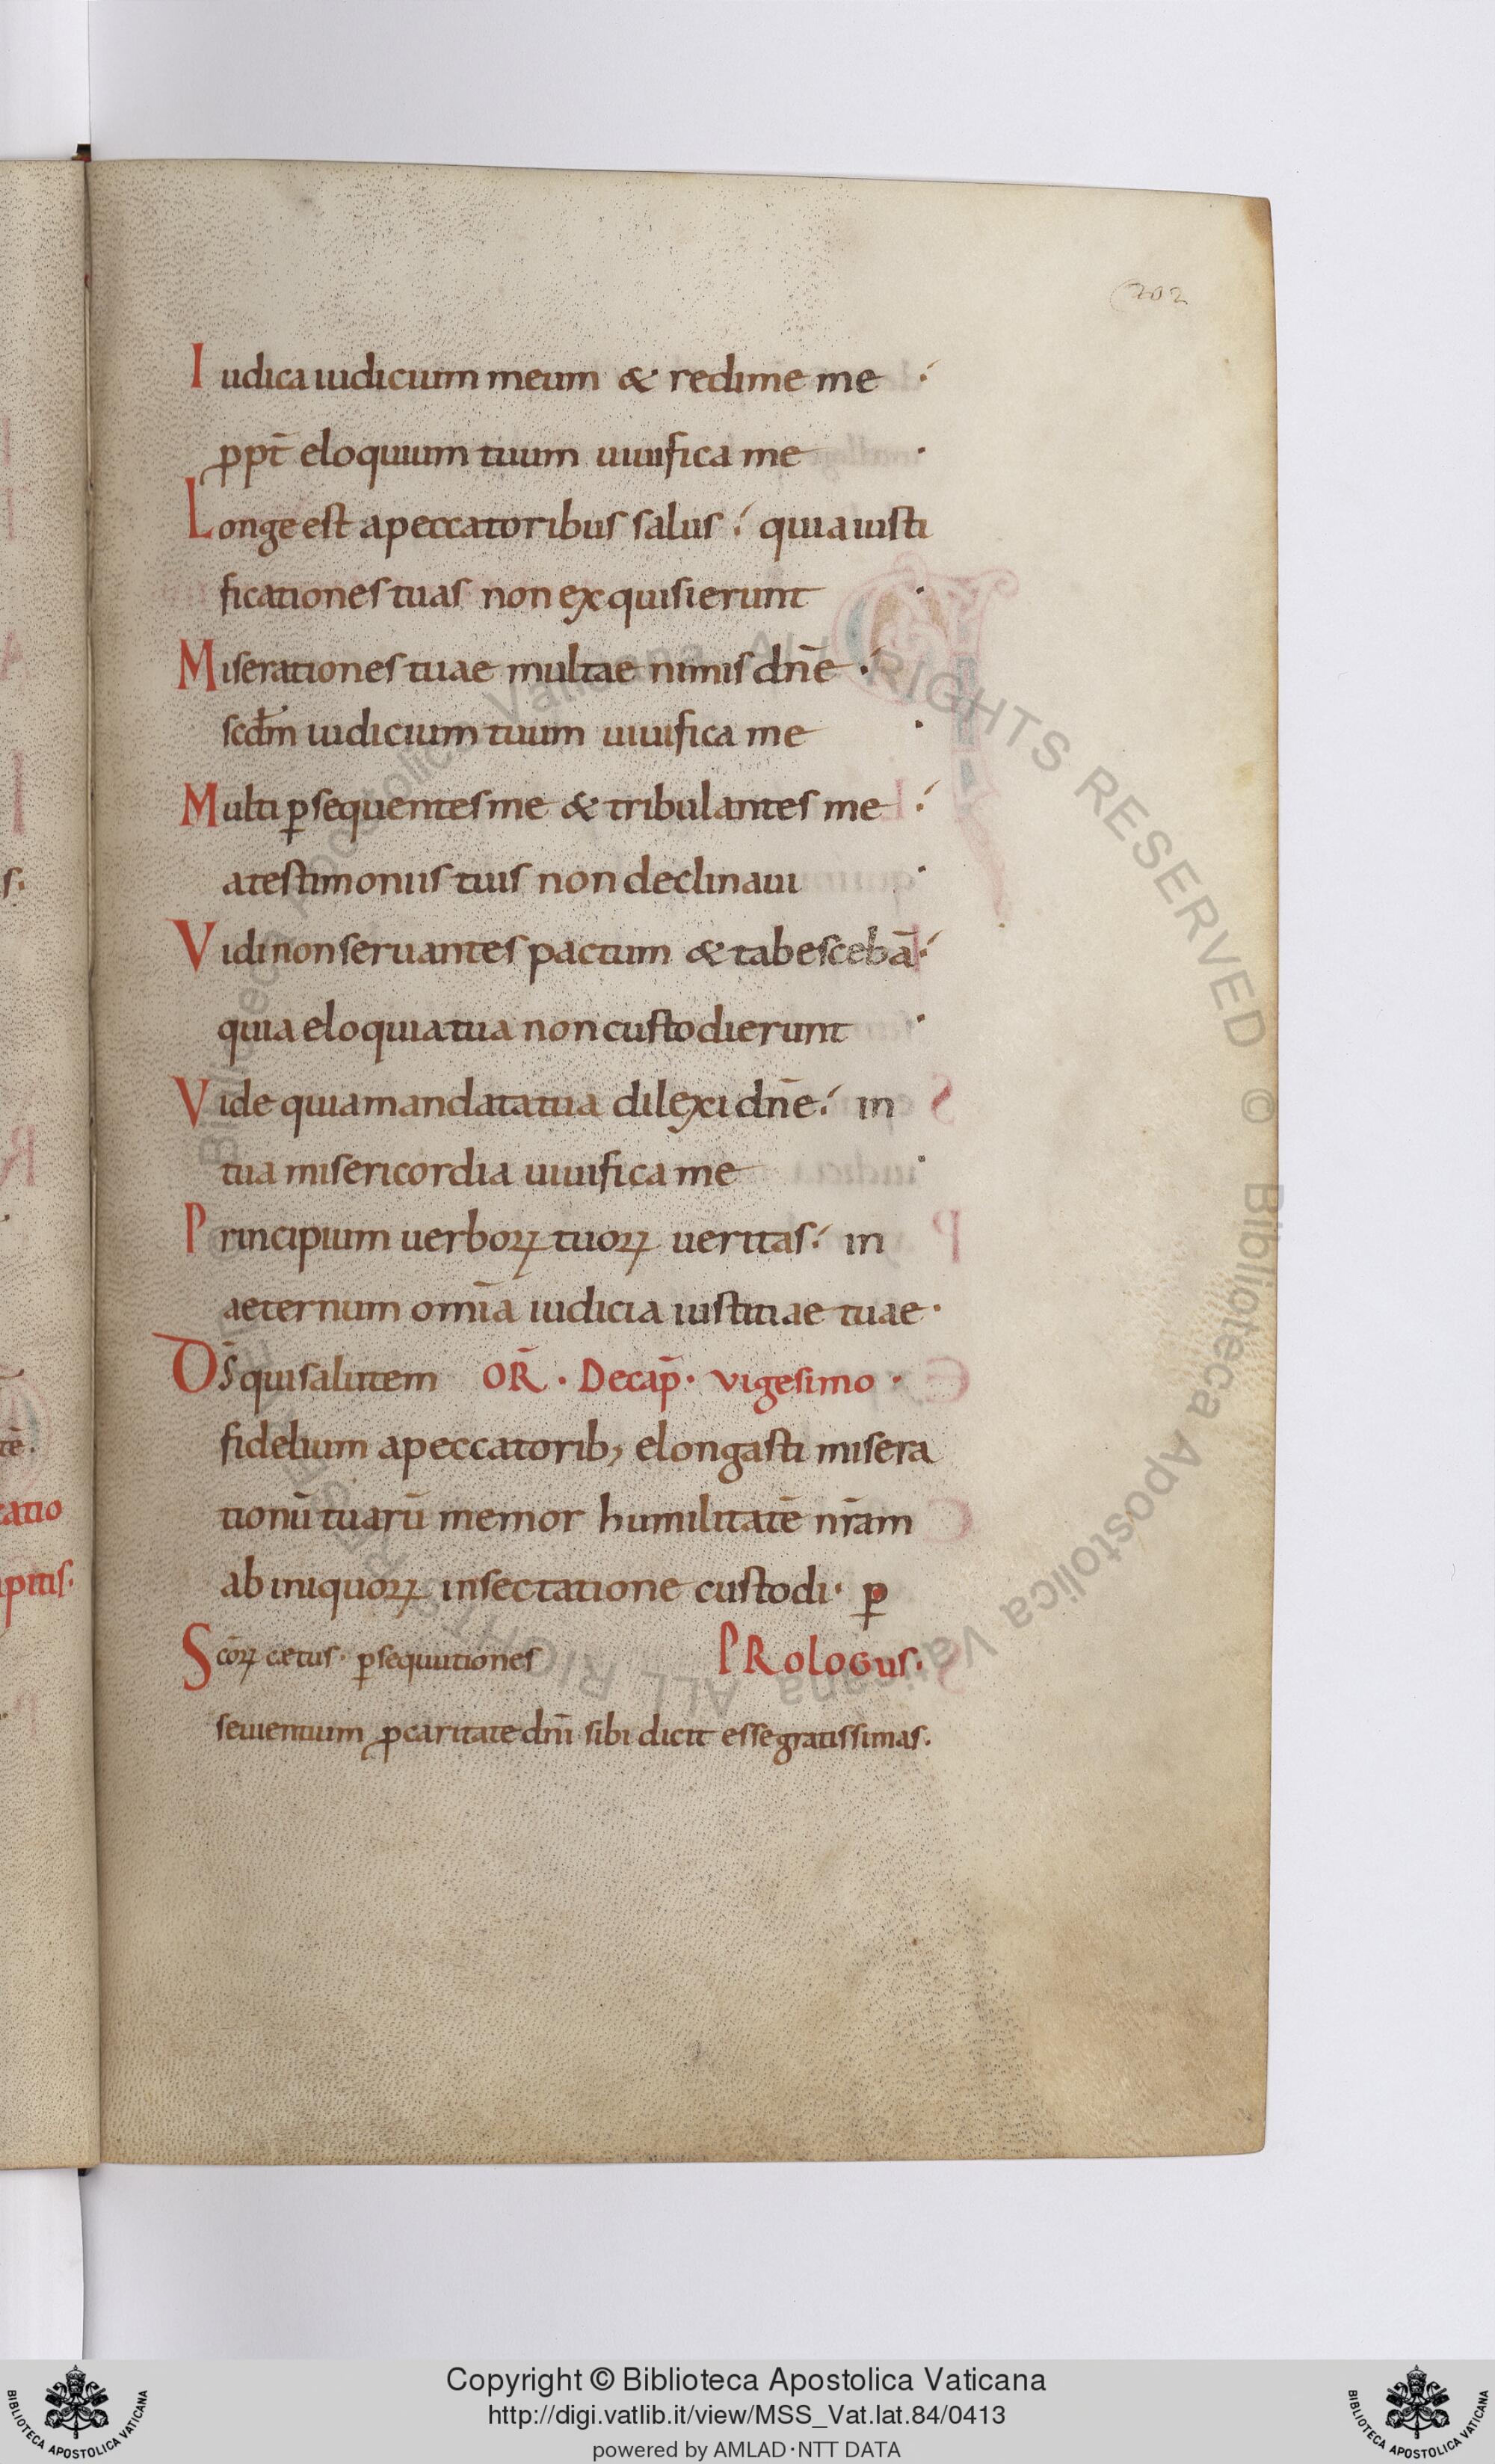 202
Iudica iudicium meum & redime me ·
ꝓpt̄ eloquium tuum uiuifica me ·
Longe est a peccatoribus salus quia iusti
ficationes tuas non exquisierunt ·
Miserationes tuae multae nimis dn̄e ·
scdm̄ iudicium tuum uiuifica me ·
Multi ꝑsequentes me & tribulantes me ·
a testimoniis tuis non declinaui ·
Vidi non seruantes pactum & tabescebā ·
quia eloquia tua non custodierunt ·
Vide quia mandata tua dilexi dn̄e in
tua misericordia uiuifica me ·
Principium uerboꝝ tuoꝝ ueritas in
aeternum om̄ia iudicia iustitiae tuae ·
Ds̄ qui salutem OR̄ · De cap̄ · vigesimo ·
fidelium a peccatorib; elongasti misera
tionū tuarū memor humilitatē nr̄am
ab iniquoꝝ insectatione custodi · ꝑ
Scōꝝ cætus · ꝑsequutiones PRoloGus ·
seuientium ꝓ caritate dn̄i sibi dicit esse gratissimas ·
s·
tē·
tatio
ipitis·
Biblioteca Apostolica Vaticana ALL RIGHTS RESERVED © Biblioteca Apostolica Vaticana ALL RIGHTS RESERVED
Copyright © Biblioteca Apostolica Vaticana
http://digi.vatlib.it/view/MSS_Vat.lat.84/0413
powered by AMLAD·NTT DATA
BIBLIOTECA APOSTOLICA VATICANA
BIBLIOTECA APOSTOLICA VATICANA